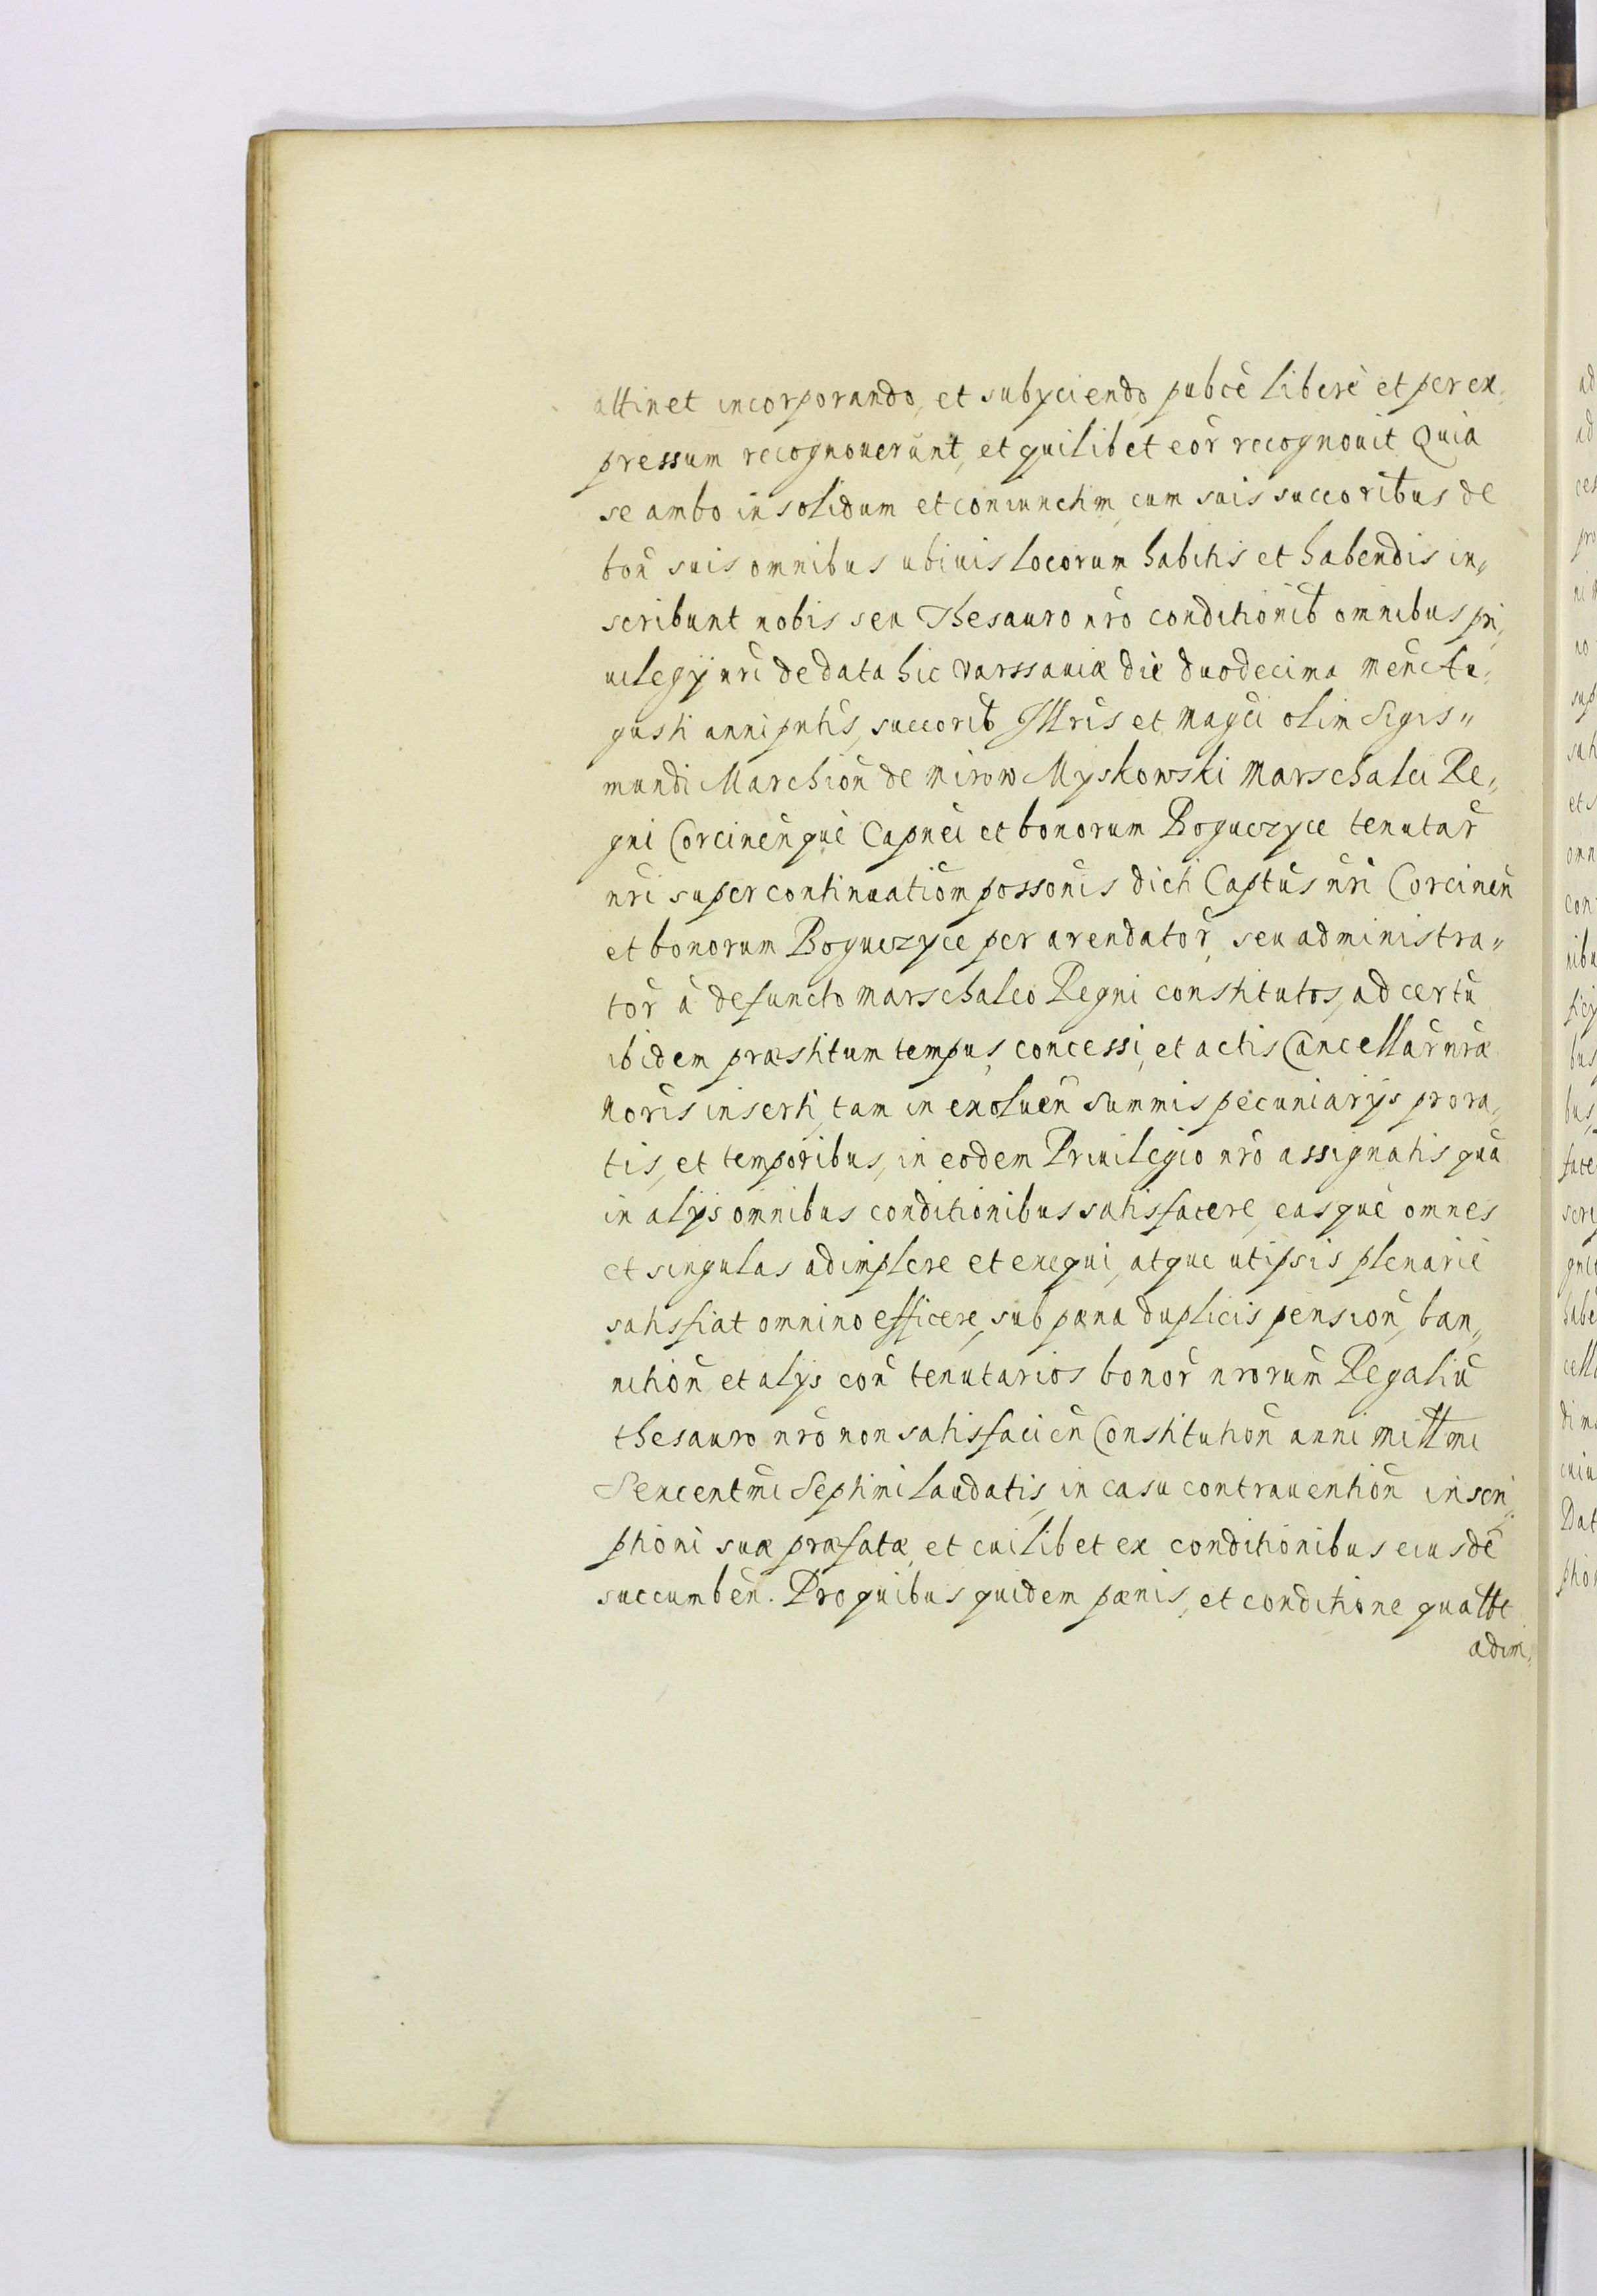 attinet incorporando, et subyciendo, pubcè liberè et per ex,,
pressum recognouerunt, et quilibet eor̃ recognouit Quia
se ambo in solidum et coniunctim, cum suis succoribus de
bon̄ suis omnibus ubiuis locorum habitis et habendis in,,
scribunt nobis seu Thesauro nr̄o conditionib̄ omnibus pri,,
uilegÿ nr̄i de data hic Varssauiæ die duodecima Men̄ Au,,
gusti anni pn̄tis, succorib̄ Illris et Magci olim Sigis,,
mundi Marchion̄ de Mirow Myskowski Marschalci Re,,
gni Corcinen̄ què Capnei et bonorum Boguczyce tenutar̄
nr̄i super continuation̄ possonis dicti Captus nr̄i Corcinen̄
et bonorum Boguczyce per arendator̄, seu administra,,
tor̄ à defuncto Marschalco Regni constitutos, ad certū
ibidem præstitum tempus, concessi, et actis Cancellar̄ nr̄æ
noris inserti, tam in exoluen̄ summis pecuniarys pro ra,,
tis, et temporibus, in eodem Priuilegio nr̄o assignatis quā
in alÿs omnibus conditionibus satisfacere, easquè omnes
et singulas adimplere et exequi, atque ut ipsis plenariè
satisfiat omnino efficere, sub pæna duplicis pension̄, ban,,
nition̄ et alÿs con̄ tenutarios bonor̄ nrorum̄ Regaliū
thesauro nr̄o non satisfacien̄ Constitution̄ anni Mittmi
Sexcentmi Septimi laudatis, in casu contrauention̄ inscri,,
ptioni suæ præfatæ, et cuilibet ex conditionibus eiusdē
succumben̄. Pro quibus quidem pænis, et conditione qualbt
adim,,